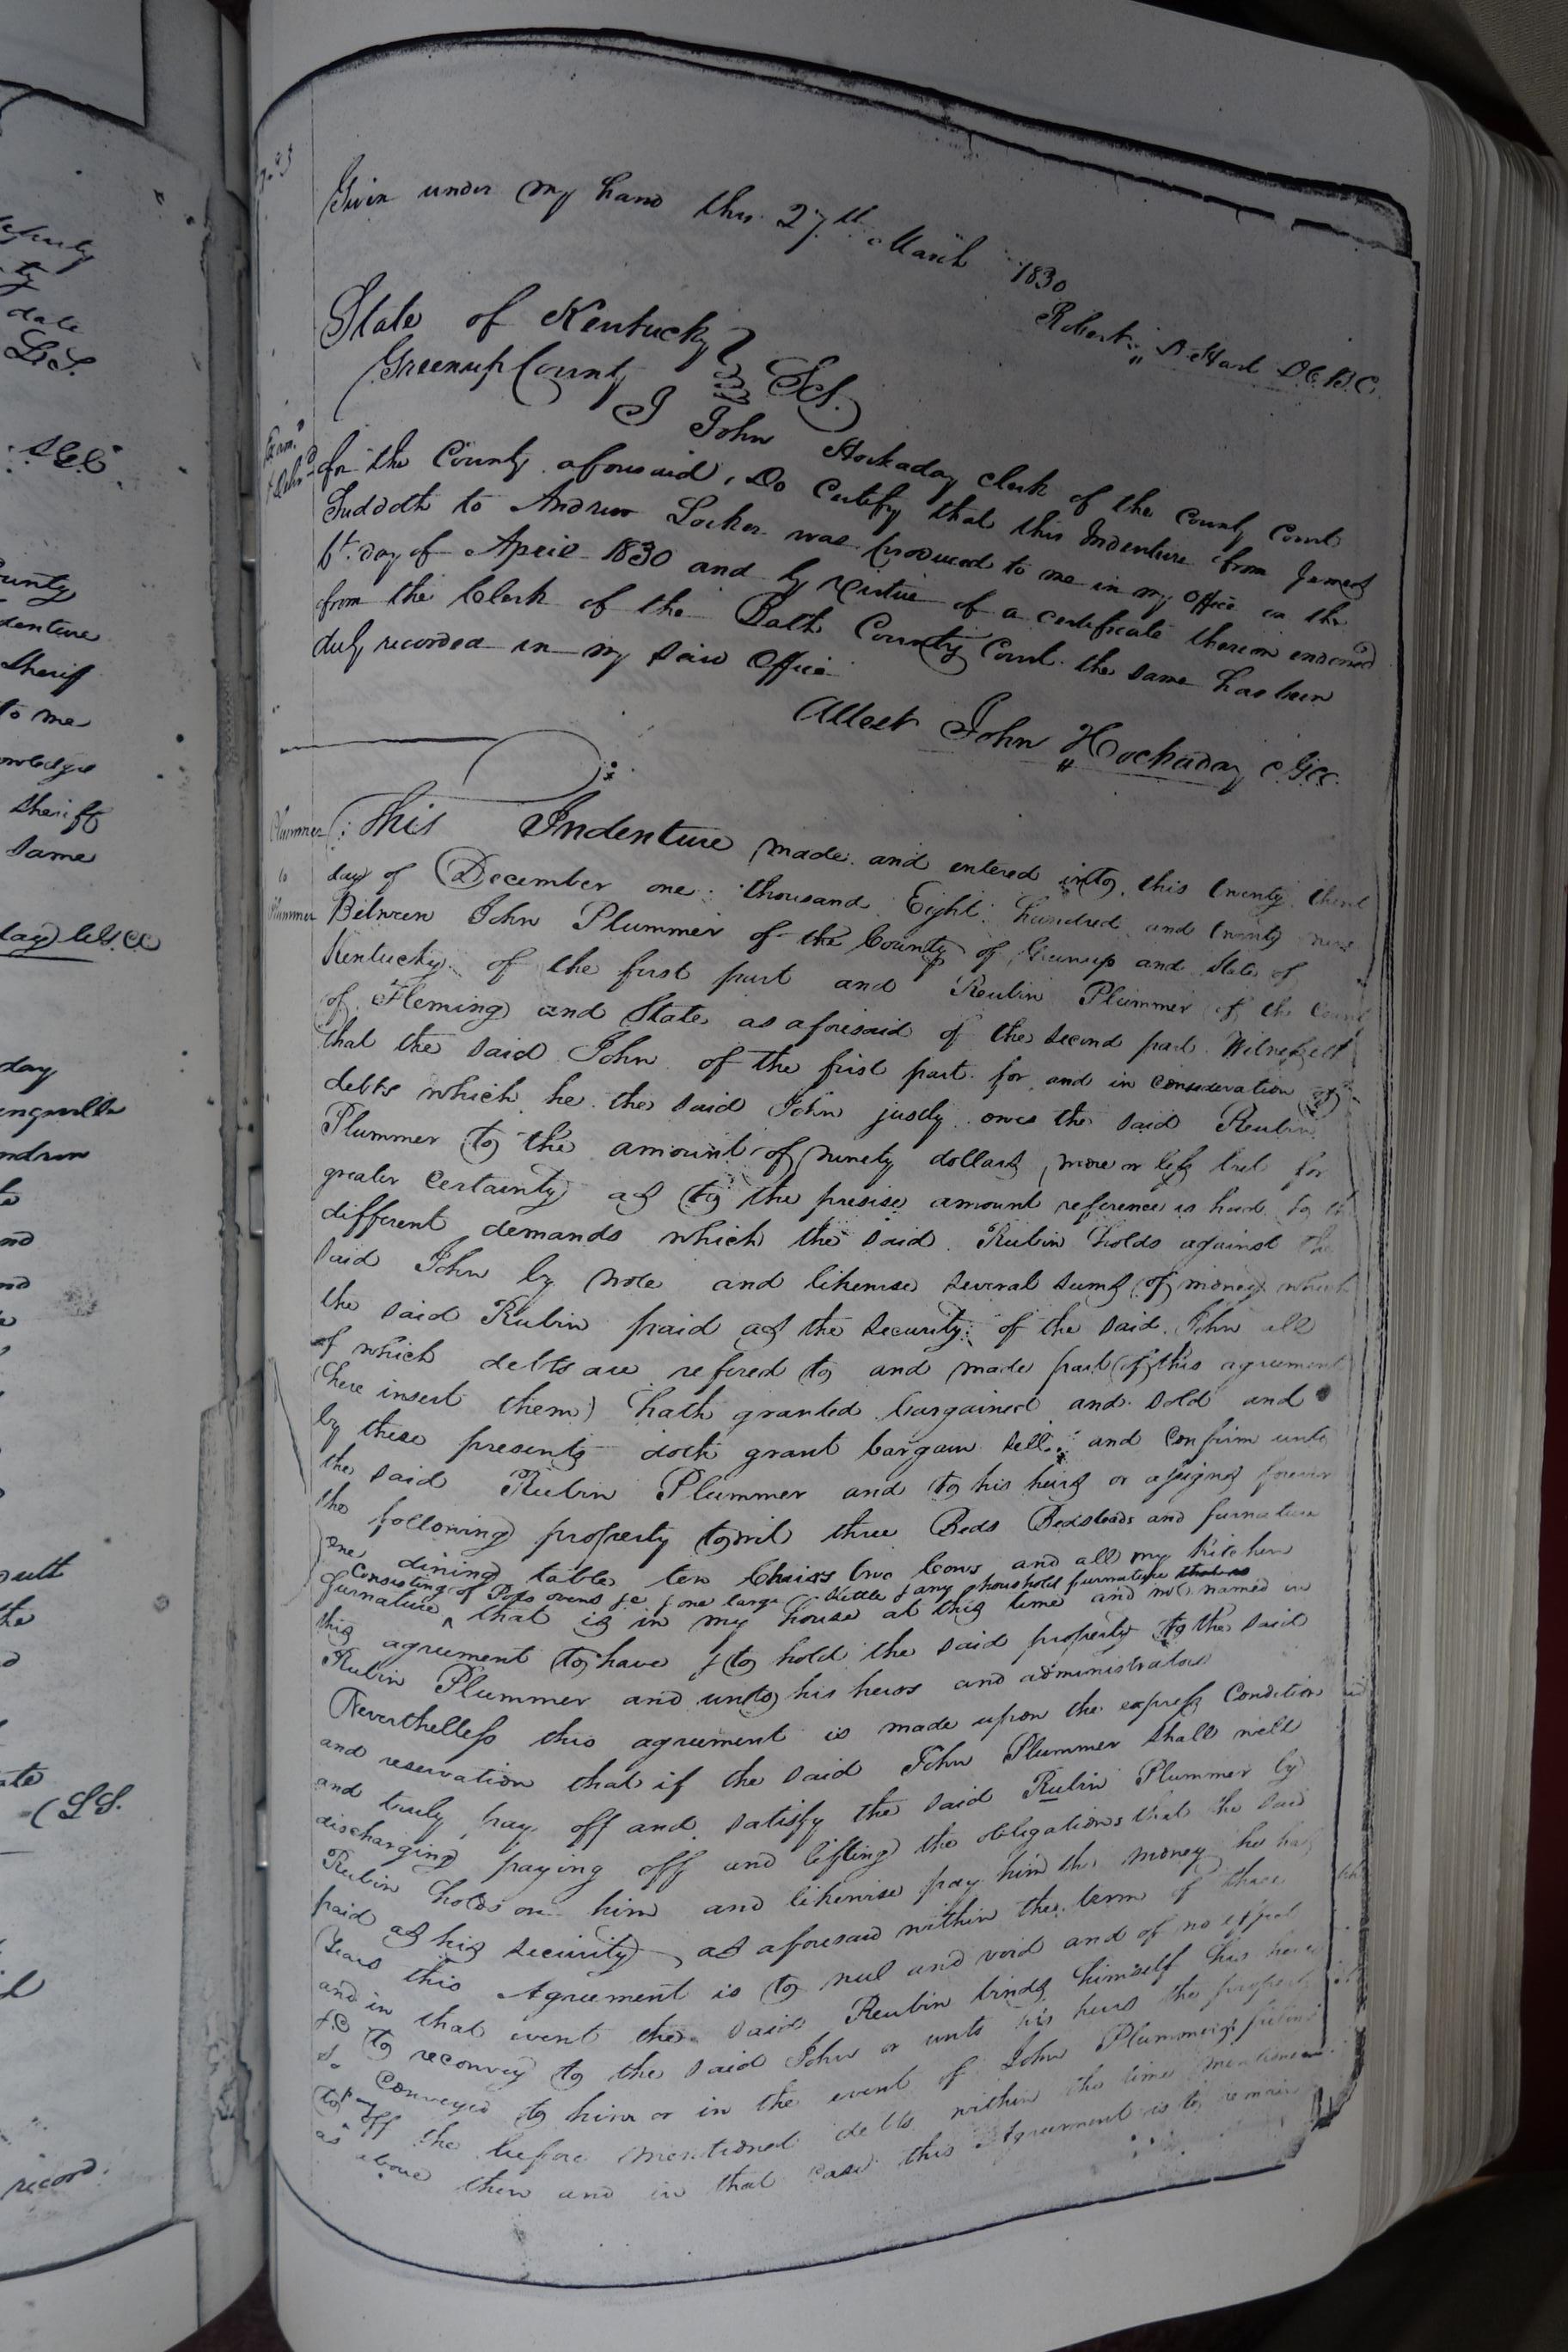 Given under my hand this 27th March 1830
Robert D. Hart D.C.B.C.
State of Kentucky
Greenup County } Sct.
I John Hockaday clerk of the County Court
for the County aforesaid, Do Certify that this Indenture from James
Suddoth to Andrew Locker was produced to me in my Office on the
6t. day of April 1830 and by virtue of a certificate thereon endorsed
from the Clerk of the Bath County Court the same has been
duly recorded in my said Office
Attest John Hockaday C.G.C.C.
Plummer
to
Plummer
This Indenture made and entered into this twenty third
day of December one thousand Eight hundred and twenty nine
Between John Plummer of the County of Greenup and State of
Kentucky of the first part and Reubin Plummer of the County
of Fleming and State as aforesaid of the second part Witnesseth
that the said John of the first part for and in consideration of
debts which he the said John justly owes the said Reubin
Plummer to the amount of ninety dollars more or less but for
greater Certainty as to the presise amount reference is had to the
different demands which the said Rubin holds against the
said John by note and likewise several sums of money which
the said Rubin paid as the security of the said John all
of which debts are refered to and made part of this agreement
(here insert them) hath granted bargained and sold and
by these presents doth grant bargain sell and Confirm unto
the said Rubin Plummer and to his heirs or assigns forever
the following property towit three Beds Bedsteads and furnature
one dining table ten Chairs two Cows and all my Kitchen
Consisting of Pots ovens &c & one large Kettle & any houshold furnature that is
furnature ^ that is in my house at this time and not named in
this agreement to have & to hold the said property to the said
Rubin Plummer and unto his heirs and administrators
Nevertheless this agreement is made upon the express Condition
and reservation that if the said John Plummer shall well
and truly pay off and satisfy the said Rubin Plummer by
discharging paying off and lifting the obligations that the said
Rubin holds on him and likewise pay him the money he has
paid as his security as aforesaid within the term of three
Years this Agreement is to null and void and of no effect
and in that event the said Reubin binds himself his heirs
&c to reconvey to the said John or unto his heirs the property
so Conveyed to him or in the event of John Plummers failing
to pay off the before mentioned debts within the time mentioned
as above then and in that case this Agreement is to remain